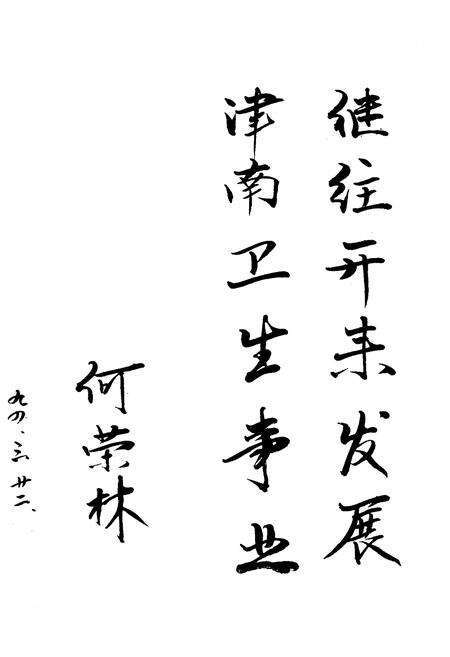 继往开来发展
津南卫生事业
何荣林
九四、三、廿二、